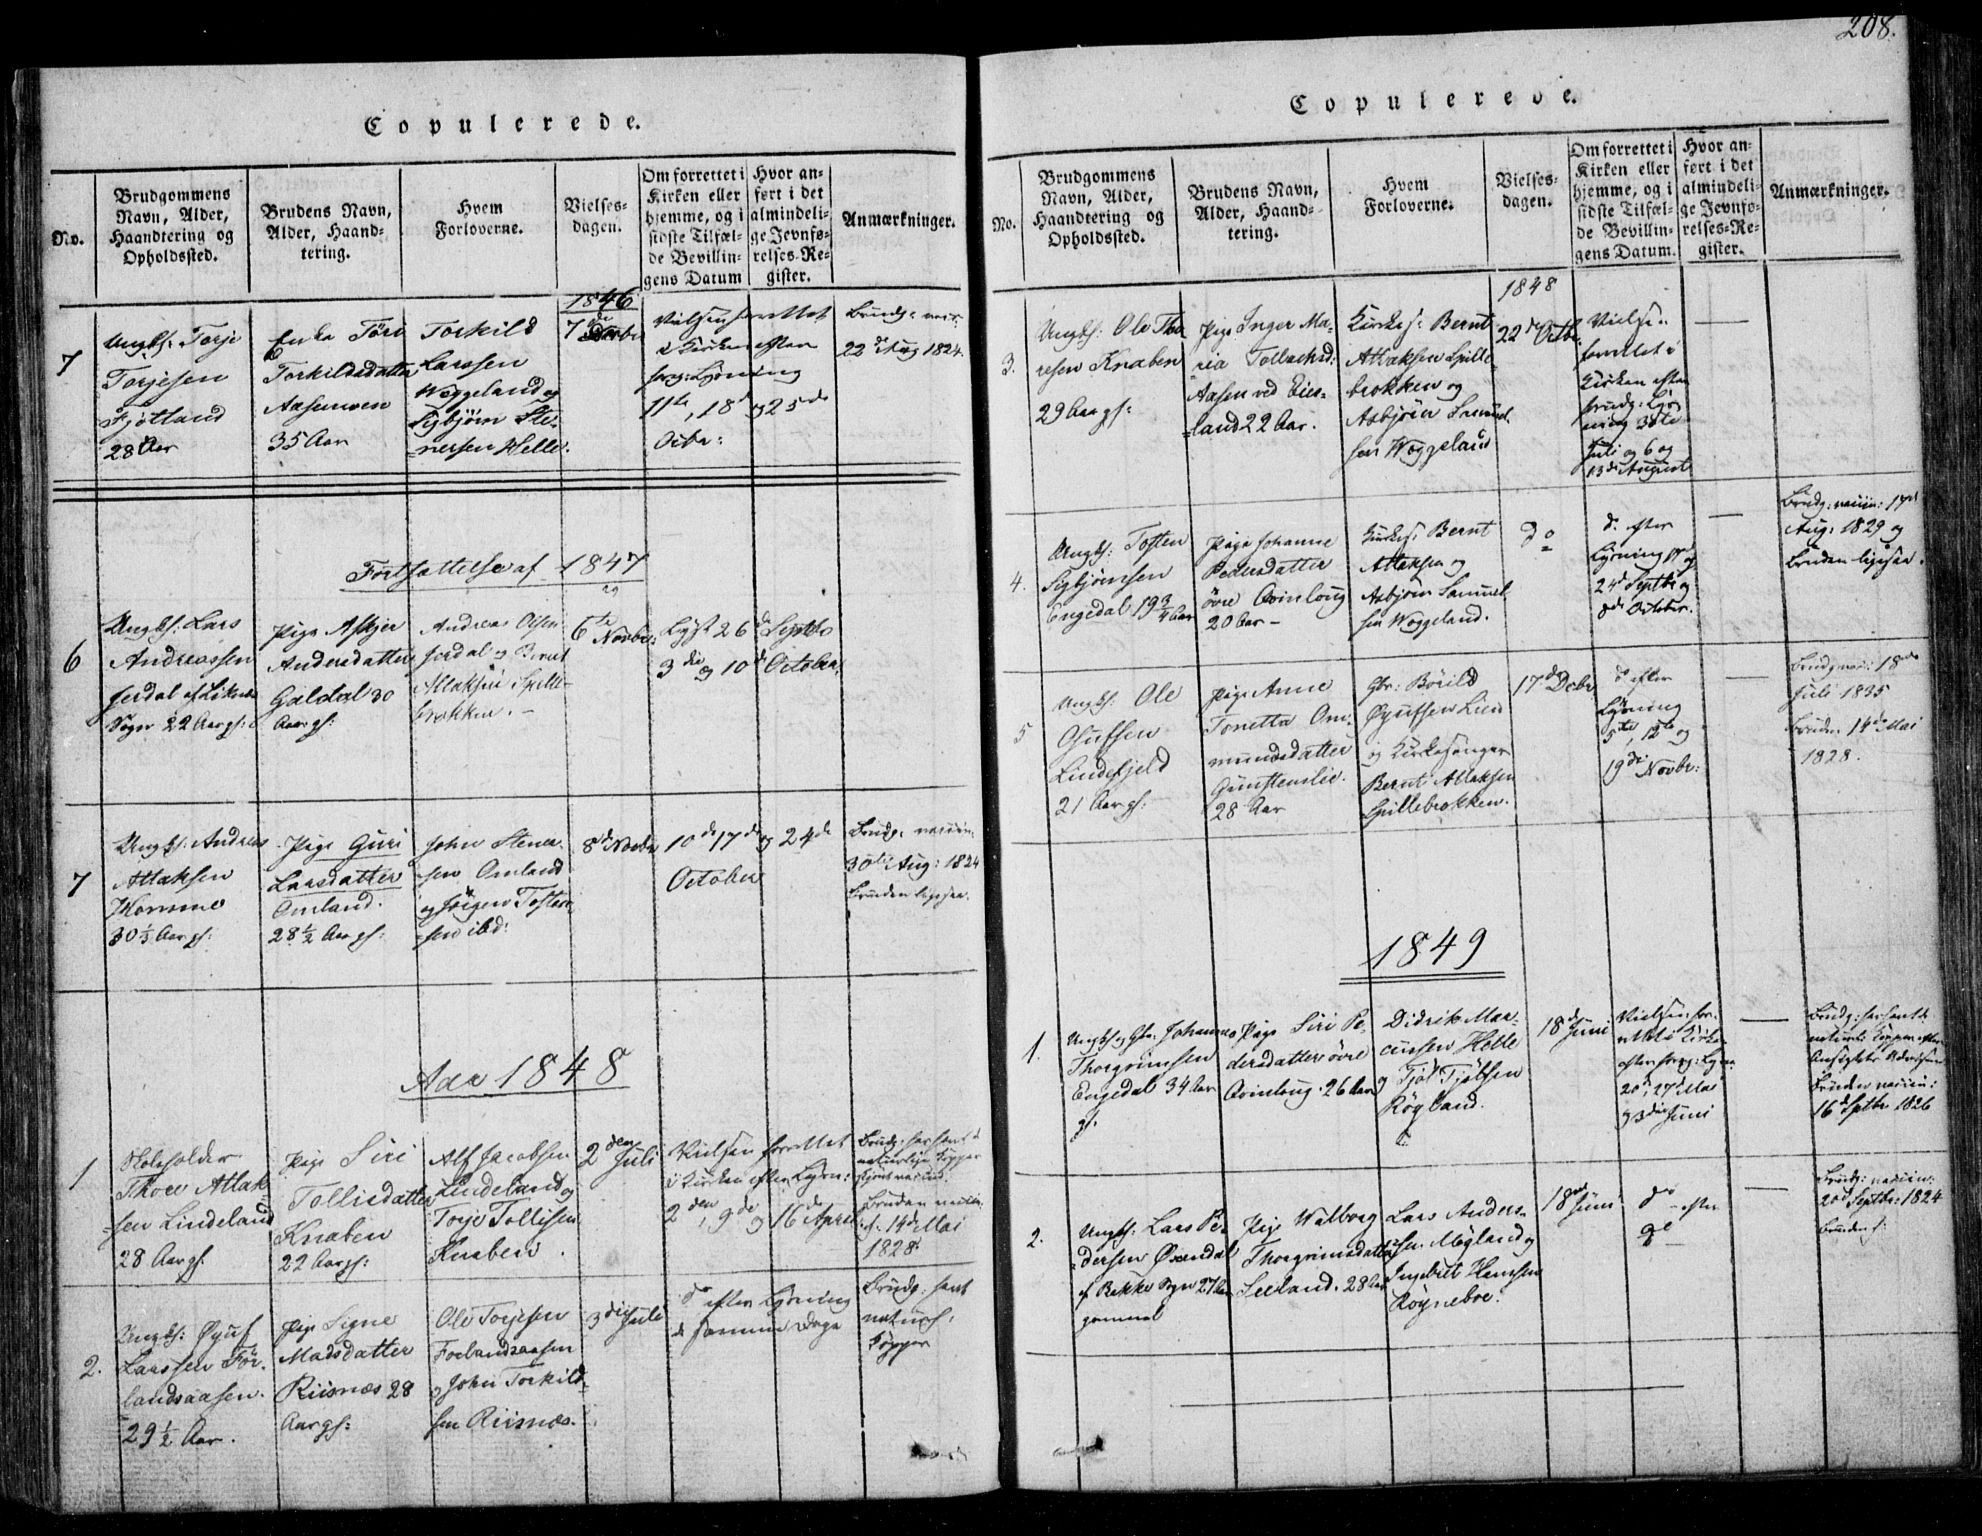 208.
Copulerede.
No.
Brudgommens
Navn, Alder,
Haandtering og
Opholdssted.
Brudens Navn,
Alder, Haand-
tering.
Hvem
Forloverne.
Vielses-
dagen.
Om forrettet i
Kirken eller
hjemme, og i
sidste Tilfæl-
de Bevillin-
gens Datum
Hvor an-
ført i det
almindeli-
ge Jevnfø-
relses-Re-
gister.
Anmærkninger.
7
Ungk: Torje
Torjesen
Fjotland
28 Aar
Enke Töri
Torkildsdatter
Aasen
35 Aar
Torkild
Larssen
Woggeland og
Sigbjörn Ste-
nersen Helle.
1846
7de
Vielsen forrettet
i Kirken efter
foreg: Lysning
11te, 18de og 25de
Octbr:
Brudg: vac:
22de Aug 1824.
Fortsættelse af 1847
6
Ungk: Lars
Andreassen
Jerdal af
Sogn 22 Aar gl:
Pige Askjer
Andersdatter
Galdal 30
Aar gl:
Andreas Olsen
Jerdal og Bernt
Attaksen Spille-
brokken.
6te Novbr:
Lyst 26de Septbr
3die og 10de October.
7
Ungk: Andreas
Attaksen
Homme
30 1/3 Aar gl:
Pige Guri
Larsdatter
Omland.
28 1/2 Aar gl:
John Stener-
sen Omland
og Jörgen Tosten-
sen ibd:
8de Novbr
10de 17de og 24de
October
Brudg: vaccin:
30te Aug: 1824
Bruden ligesaa.
Aar 1848
1
Skoleholder
Thore Attak-
sen Lindeland
28 Aar gl.
Pige Siri
Tollisdatter
Knaben
22 Aar gl:
Alf Jacobsen
Lindeland og
Torje Tollisen
Knaben.
2den Juli
Vielsen forrettet
i Kirken efter Lysn:
2den, 9de og 16de April
Brudg: har havt de
naturlige Kopper
Bruden vaccin:
d. 14de Mai
1828
2.
Ungk: Öyuf
Larssen För-
landsaasen.
29 1/2 Aar.
Pige Signe
Madsdatter
Risnæs 28
Aar gl:
Ole Torjesen
Forlandsaasen
og John Torkild-
sen Risnæs.
3die Juli
do efter Lysning
de samme Dage
Brudg: havt
naturl:
Kopper
Copulerede.
No.
Brudgommens
Navn, Alder,
Haandtering og
Opholdssted.
Brudens Navn,
Alder, Haand-
tering.
Hvem
Forloverne.
Vielses-
dagen.
Om forrettet i
Kirken eller
hjemme, og i
sidste Tilfæl-
de Bevillin-
gens Datum.
Hvor an-
ført i det
almindeli-
ge Jevnfø-
relses-Re-
gister.
Anmærkninger.
3.
Ungk: Ole Tho-
resen Knaben
29 Aar gl:
Pige Inger Ma-
ria Tollachsd:
Aasen ved Eies-
land 22 Aar.
Kirkes: Bernt
Attaksen Spille-
brokken og
Asbjörn Samuel-
sen Woggeland
1848
22de Octbr.
Vielse
forrettet i
Kirken efter
foreg: Lys-
ning 30te
Juli og 6 og
13de August
4.
Ungk: Tosten
Sigbjörnsen
Engedal 19 3/4 Aar
Pige Johanne
Pedersdatter
övre Qvinloug
20 Aar -
Kirkes: Bernt
Attaksen og
Asbjörn Samuel-
sen Woggeland.
do
do efter
Lysning 17de og
24de Septbr og
8de October.
Brudg: vaccin: 17de
Aug: 1829 og
Bruden ligesaa.
5
Ungk: Ole
Osuffsen
Lindefjeld
21 Aar gl:
Pige Anne
Tonetta Om-
mundsdatter
Gunstenslie.
28 Aar
Gbr: Börild
Öyuffsen Lien
og Kirkesanger
Bernt Attaksen
Spillebrokken.
17de Dcbr
do efter
Lysning
5te, 12te og
19de Novbr:
Brudg vac: 18de
Juli 1835
Bruden 14de Mai
1828.
1849
1.
Ungk og Gbr. Johannes
Thorgrimsen
Engedal 34 Aar
gl.
Pige Siri Pe-
dersdatter övre
Qvinloug. 26 Aar
Didrik Mar-
cussen Helle
og Tjöl Tjölsen
Röyland.
18de Juni
Vielsen for-
rettet i Kirken
efter foreg: Lysn:
20de, 27de Mai
og 3die Juni
Brudg: har havt de
naturl: Kopper efter
Bruden vaccin:
16de Septbr 1826
2.
Ungk: Lars Pe-
dersen Öxendal
af Bakke Sogn 27 Aar
gammel
Pige Walborg
Thorgrimsdatter
Seeland. 28 Aar
Lars Anders-
sen Möyland og
Ingebret Hansen
Röynebro.
18de Juni
do efter
do
Brudg: vaccin:
20de Septbr: 1824